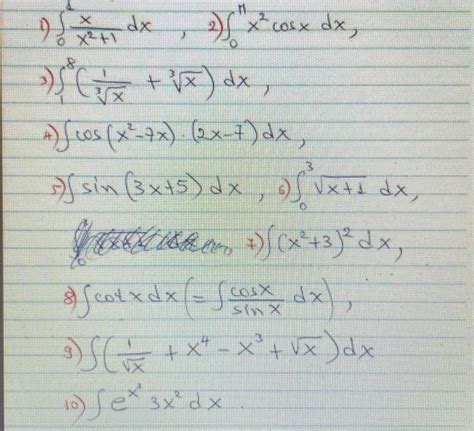 1) ∫₀¹ x/(x²+1) dx , 2) ∫₀^π x² cosx dx,
3) ∫₁⁸ (1/∛x + ∛x) dx ,
4) ∫cos(x²-7x)·(2x-7)dx,
5) ∫sin(3x+5)dx , 6) ∫₀³ √(x+1) dx,
7) ∫(x²+3)² dx,
8) ∫cotx dx (= ∫ cosx/sinx dx) ,
9) ∫(1/√x + x⁴ - x³ + √x) dx
10) ∫e^(x³) 3x² dx .